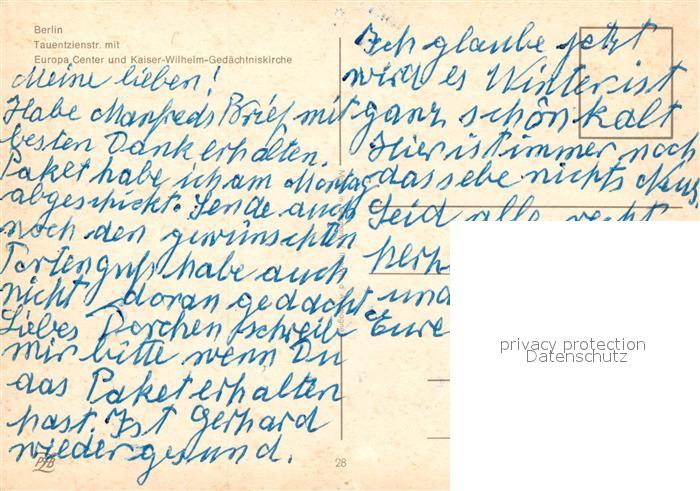 Berlin
Tauentzienstr. mit
Europa Center und Kaiser-Wilhelm-Gedächtniskirche
Meine lieben!
Habe Manfreds Brief mit
besten Dank erhalten.
Paket habe ich am Montag
abgeschickt. Sende auch
noch den gewünschten
Tortenguß habe auch
nicht doran gedacht
Liebes Dorchen schreib
mir bitte wenn Du
das Paket erhalten
hast. Ist Gerhard
wieder gesund.
Ich glaube jetzt
wird es Winter ist
ganz schön kalt
Hier ist immer noch
dasselbe nichts Neues.
Seid alle recht
herh
und
Eure
PFB
28
privacy protection
Datenschutz